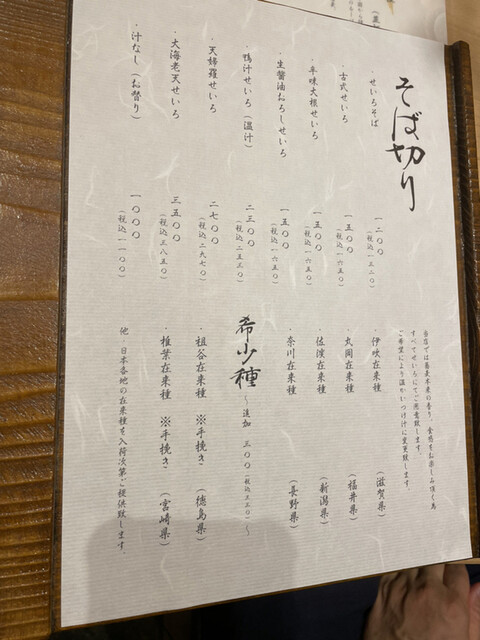 そば切り
・せいろそば 一二〇〇 (税込一三二〇)
・古式せいろ 一五〇〇 (税込一六五〇)
・辛味大根せいろ 一五〇〇 (税込一六五〇)
・生醤油おろしせいろ 一五〇〇 (税込一六五〇)
・鴨汁せいろ (温汁) 二三〇〇 (税込二五三〇)
・天婦羅せいろ 二七〇〇 (税込二九七〇)
・大海老天せいろ 三五〇〇 (税込三八五〇)
・汁なし (お替り) 一〇〇〇 (税込一一〇〇)
当店では蕎麦本来の香り、食感をお楽しみ頂く為
すべてせいろにてご用意致します。
ご希望により温かいつけ汁に変更致します。
・伊吹在来種 (滋賀県)
・丸岡在来種 (福井県)
・佐渡在来種 (新潟県)
・奈川在来種 (長野県)
希少種 〜追加 三〇〇 (税込三三〇)〜
・祖谷在来種 ※手挽き (徳島県)
・椎葉在来種 ※手挽き (宮崎県)
他、日本各地の在来種を入荷次第ご提供致します。